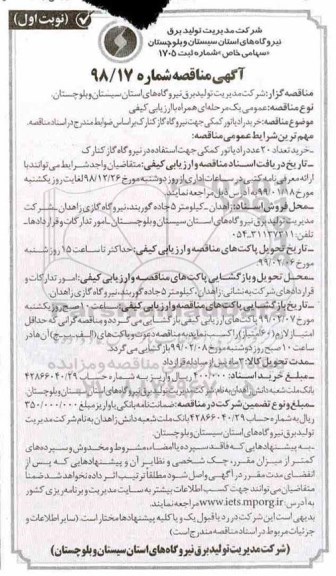 (نوبت اول)
شرکت مدیریت تولید برق
نیروگاه‌های استان سیستان و بلوچستان
«سهامی خاص» شماره ثبت ۱۷۰۵
آگهی مناقصه شماره ۹۸/۱۷
مناقصه گزار: شرکت مدیریت تولید برق نیروگاه‌های استان سیستان و بلوچستان.
نوع مناقصه: عمومی یک مرحله‌ای همراه با ارزیابی کیفی
موضوع مناقصه: خرید رادیاتور کمکی جهت نیروگاه گازکنارک بر اساس ضوابط مندرج در اسناد مناقصه.
مهم ترین شرایط عمومی مناقصه:
ـ خرید تعداد ۲۰ عدد رادیاتور کمکی جهت استفاده در نیروگاه گازکنارک
ـ تاریخ دریافت اسناد مناقصه و ارزیابی کیفی: متقاضیان واجد شرایط می توانند با
ارائه معرفی نامه کتبی در ساعات اداری از روز دوشنبه مورخ ۹۸/۱۲/۲۶ لغایت روز یکشنبه
مورخ ۹۹/۰۱/۱۸ به آدرس ذیل مراجعه نمایند.
ـ محل فروش اسناد: زاهدان ـ کیلومتر ۵ جاده گوربند، نیروگاه گازی زاهدان ـ شرکت
مدیریت تولید برق نیروگاه‌های استان سیستان و بلوچستان ـ امور تدارکات و قراردادها ـ
تلفن: ۳۱۱۳۷۲۱۱-۰۵۴
ـ تاریخ تحویل پاکت‌های مناقصه و ارزیابی کیفی: حداکثر تا ساعت ۱۵ روز شنبه
مورخ ۹۹/۰۲/۰۶
ـ محل تحویل و بازگشایی پاکت‌های مناقصه و ارزیابی کیفی: امور تدارکات و
قراردادهای شرکت به نشانی زاهدان، کیلومتر ۵ جاده گوربند، نیروگاه گازی زاهدان
ـ تاریخ بازگشایی پاکت‌های مناقصه و ارزیابی کیفی: ساعت ۱۰ صبح روز یکشنبه
مورخ ۹۹/۰۲/۰۷ پاکت‌های ارزیابی کیفی بازگشایی می گردد و مناقصه گرانی که حداقل
امتیاز لازم (۶۰ امتیاز) را کسب نمایند به مناقصه دعوت و پاکت‌های (الف، ب، ج) آن‌ها در
ساعت ۱۰ صبح روز دوشنبه مورخ ۹۹/۰۲/۰۸ بازگشایی می گردد.
ـ مدت تحویل کالا: ماه پس از مبادله قرارداد
ـ مبلغ خرید اسناد: ۴۰۰/۰۰۰ ریال واریز به شماره حساب ۴۲۸۶۶۰۴۰/۲۹
بانک ملت شعبه دانش زاهدان به نام شرکت مدیریت تولید برق نیروگاه‌های استان سیستان و بلوچستان
ـ مبلغ و نوع تضمین شرکت در مناقصه: ضمانت نامه بانکی یا واریز مبلغ ۳۵۰/۰۰۰/۰۰۰
ریال به شماره حساب ۴۲۸۶۶۰۴۰/۲۹ بانک ملت شعبه دانش زاهدان به نام شرکت مدیریت
تولید برق نیروگاه‌های استان سیستان و بلوچستان.
ـ به پیشنهادهایی که فاقد سپرده یا امضاء، مشروط و مخدوش و سپرده‌های
کمتر از میزان مقرر، چک شخصی و نظایر آن و پیشنهادهایی که پس از
انقضای مدت مقرر در آگهی واصل شود مطلقاً ترتیب اثر داده نخواهد شد ضمناً
متقاضیان می توانند جهت کسب اطلاعات بیشتر به سایت مدیریت و برنامه ریزی کشور
به آدرس: www.iets.mporg.ir مراجعه نمایند.
بدیهی است این شرکت در رد یا قبول یک و یا کلیه پیشنهادها مختار است. (سایر اطلاعات و
جزئیات مربوط در اسناد مناقصه مندرج است)
(شرکت مدیریت تولید برق نیروگاه‌های استان سیستان و بلوچستان)